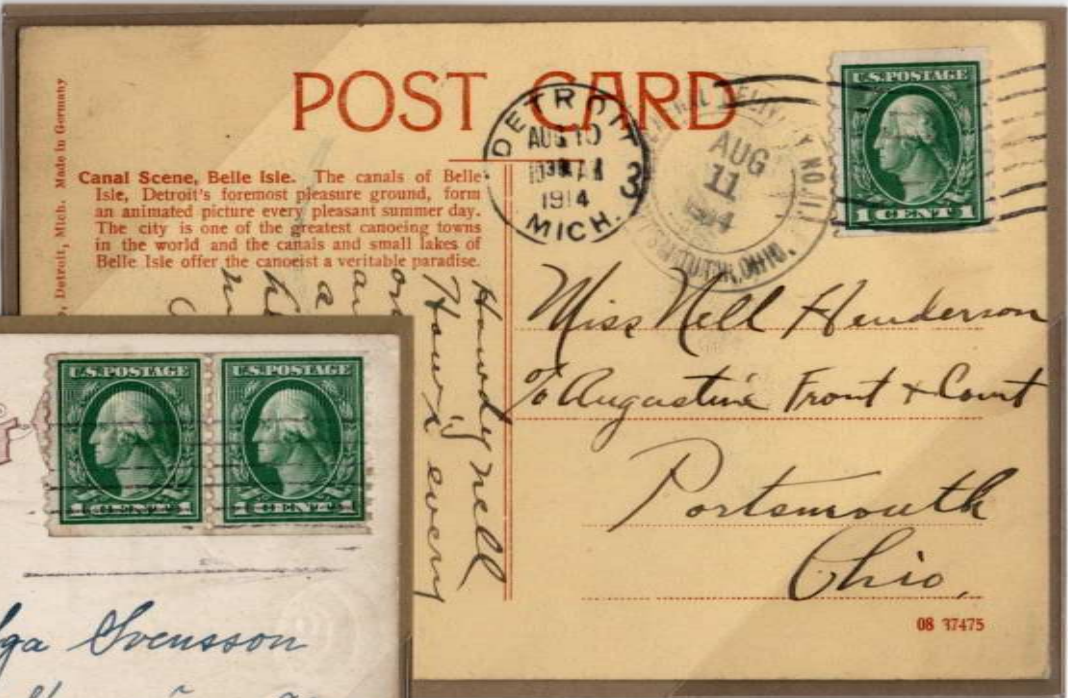 POST CARD
Detroit, Mich. Made in Germany
Canal Scene, Belle Isle. The canals of Belle
Isle, Detroit's foremost pleasure ground, form
an animated picture every pleasant summer day.
The city is one of the greatest canoeing towns
in the world and the canals and small lakes of
Belle Isle offer the canoeist a veritable paradise.
DETROIT
AUG 10
1914
MICH.
3
AUG
11
OHIO.
U.S.POSTAGE
1 CENT 1
Howdy Nell
How's every
a
Miss Nell Henderson
℅ Augustine Front + Court
Portsmouth
Ohio,
08 37475
U.S.POSTAGE
1 CENT 1
U.S.POSTAGE
1 CENT 1
Svensson